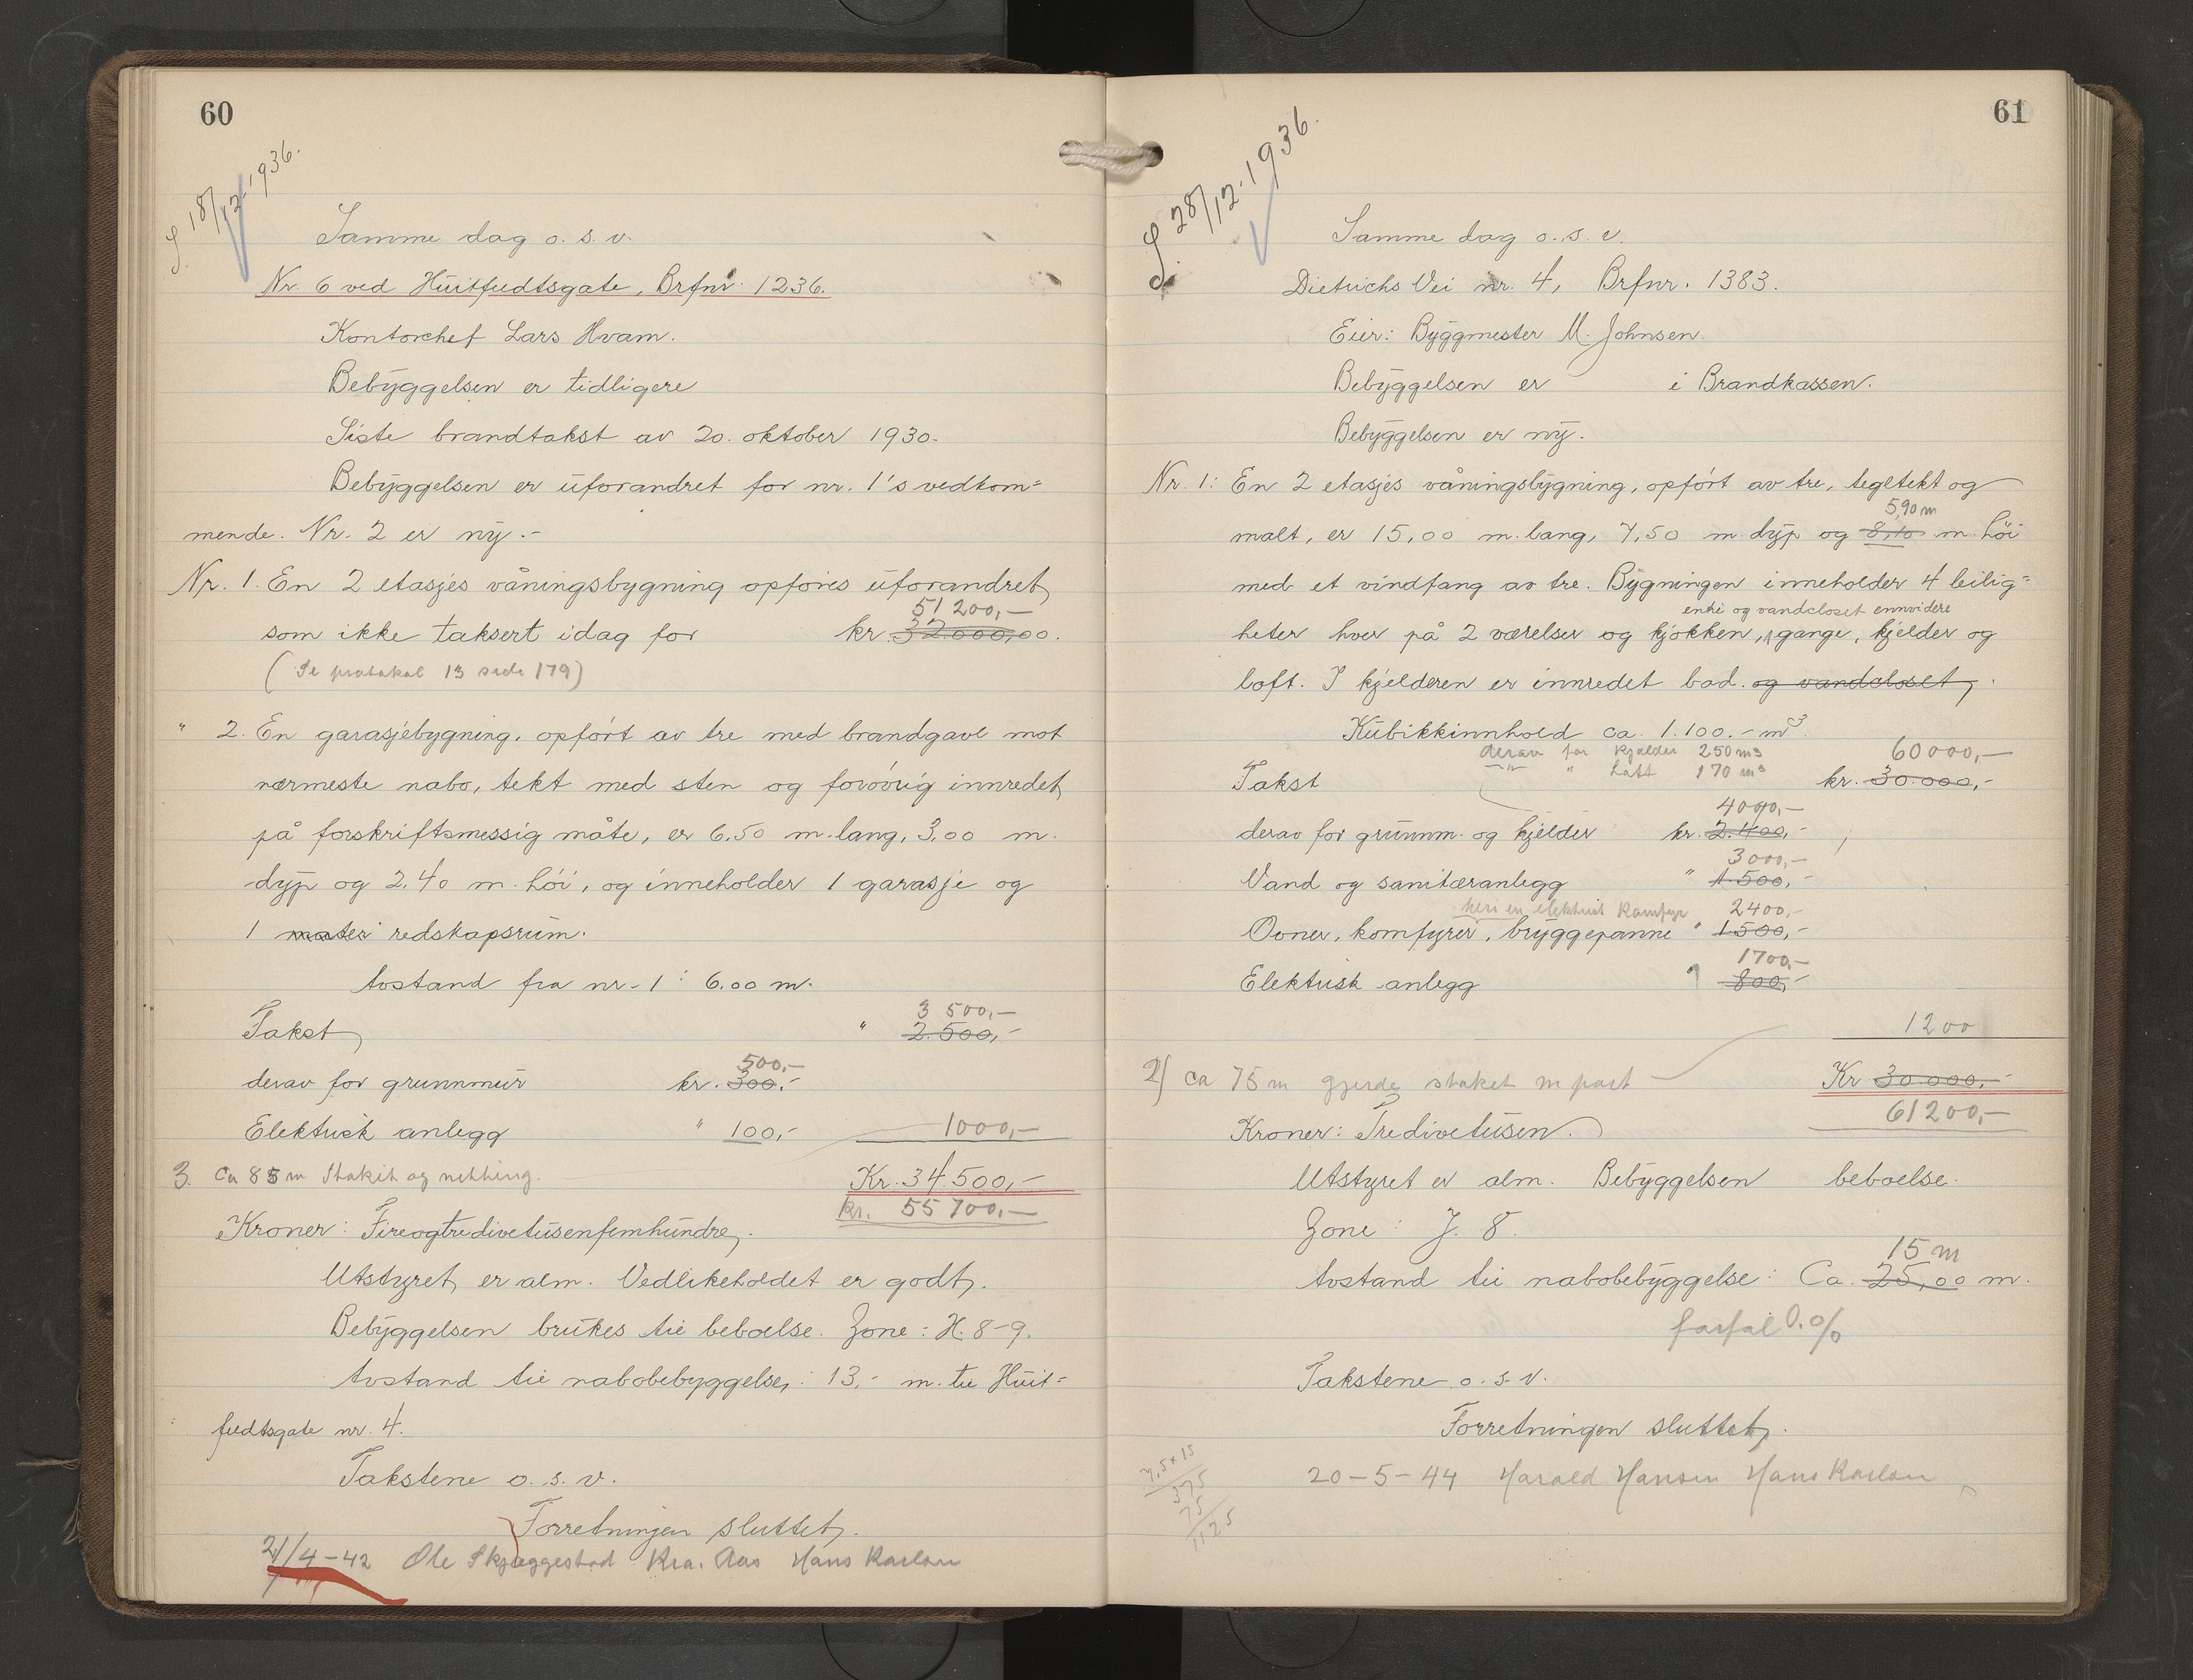 60
S. 18/12-1936.
Samme dag o. s. v.
Nr. 6 ved Huitfeldtsgate, Brfnr. 1236.
Kontorchef Lars Hvam.
Bebyggelsen er tidligere
Siste brandtakst av 20. oktober 1930.
Bebyggelsen er uforandret for nr. 1's vedkom=
mende. Nr. 2 er ny.-
Nr. 1. En 2 etasjes våningsbygning opføres uforandret,
51 200,-
som ikke taksert idag for kr. 32.000,00.
(Se protokol 13 side 179)
" 2. En garasjebygning, opført av tre med brandgavl mot
nærmeste nabo, tekt med sten og forøvrig innredet
på forskriftsmessig måte, er 6,50 m. lang, 3,00 m.
dyp og 2,40 m. høi, og inneholder 1 garasje og
1 redskapsrum.
Avstand fra nr. 1: 6.00 m.
3 500,-
Takst " 2.500,-
500,-
derav for grunnmur kr. 300,-
Elektrisk anlegg " 100,- 1000,-
3. Ca 85 m Stakit og netting. Kr. 34.500,-
kr. 55 700,-
Kroner: Fireogtredivetusenfemhundre.
Utstyret er alm. Vedlikeholdet er godt.
Bebyggelsen brukes til beboelse. Zone: H. 8-9.
Avstand til nabobebyggelse: 13,- m. til Huit=
feldtsgate nr. 4.
Takstene o. s. v.
Forretningen sluttet.
21/4-42 Ole Skjæggestad Kra. Aas Hans Karlsen
61
S. 28/12-1936.
Samme dag o. s. v.
Dietrichs Vei nr. 4, Brfnr. 1383.
Eier: Byggmester M. Johnsen.
Bebyggelsen er i Brandkassen.
Bebyggelsen er ny.
Nr. 1: En 2 etasjes våningsbygning, opført av tre, tegltekt og
5,90 m
malt, er 15,00 m. lang, 7,50 m. dyp og 8,10 m. høi
med et vindfang av tre. Bygningen inneholder 4 leilig=
entré og vandcloset ennvidere
heter hver på 2 værelser og kjøkken, gange, kjelder og
loft. I kjelderen er innredet bad. og vandcloset,
Kubikkinnhold ca. 1.100.- m³.
derav for kjelder 250 m³ 60000,-
-"- " Loft 170 m³
Takst kr. 30.000,-
4000,-
derav for grunnm. og kjelder kr. 2.400,-
3000,-
Vand og sanitæranlegg " 1.500,-
heri en elektrisk Komfyr 2400,-
Ovner, komfyrer, bryggepanne " 1500,-
1700,-
Elektrisk anlegg " 800,-
1200
2) ca 75 m gjerde stakit m port Kr 30.000,-
61200,-
Kroner: Tredivetusen.
Utstyret er alm. Bebyggelsen beboelse.
Zone: J. 8.
15 m
Avstand til nabobebyggelse: Ca. 25,00 m.
forfal 0.%
Takstene o. s. v.
Forretningen sluttet.
20-5-44 Harald Hansen Hans Karlsen
7,5 x 15
375
75
1125